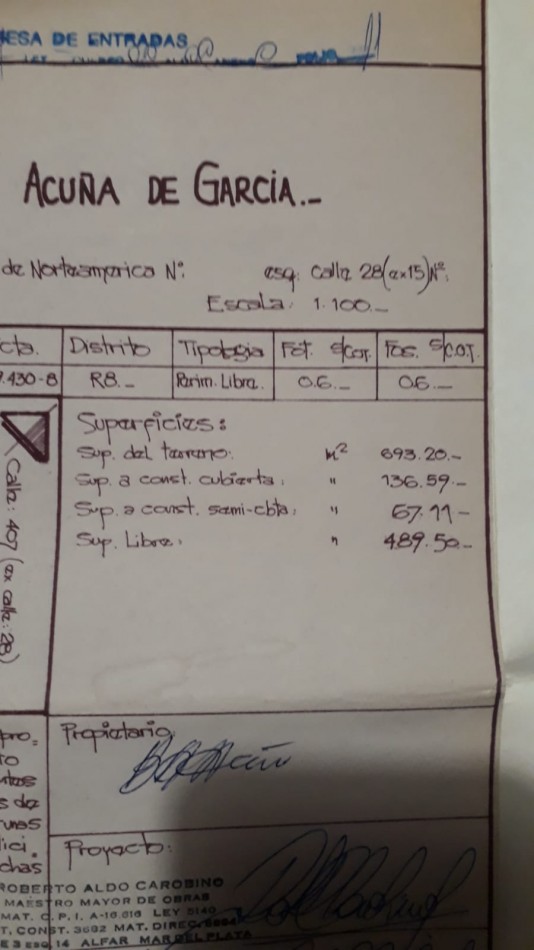 MESA DE ENTRADAS
ACUÑA DE GARCIA.-
de Norteamerica Nº:
esq. Calle 28(ex15)Nº:
Escala: 1:100.-
cta. Distrito Tipologia Fot. s/COT. Fos. s/C.O.T.
.430-8 R8.- Parim. Libre. 0.6.- 0.6.-
Superficies:
Sup. del terreno: m² 693.20.-
Sup. a const. cubierta: " 136.59.-
Sup. a const. semi-cbta: " 67.11-
Sup. Libre: " 489.50.-
Calle: 407 (ex calle: 28)
Propietario
Proyecto:
ROBERTO ALDO CAROBINO
MAESTRO MAYOR DE OBRAS
MAT. C.P.I. A-16.016 LEY 5140
T. CONST. 3682 MAT. DIREC.
E 3 ESQ. 14 ALFAR MAR DEL PLATA